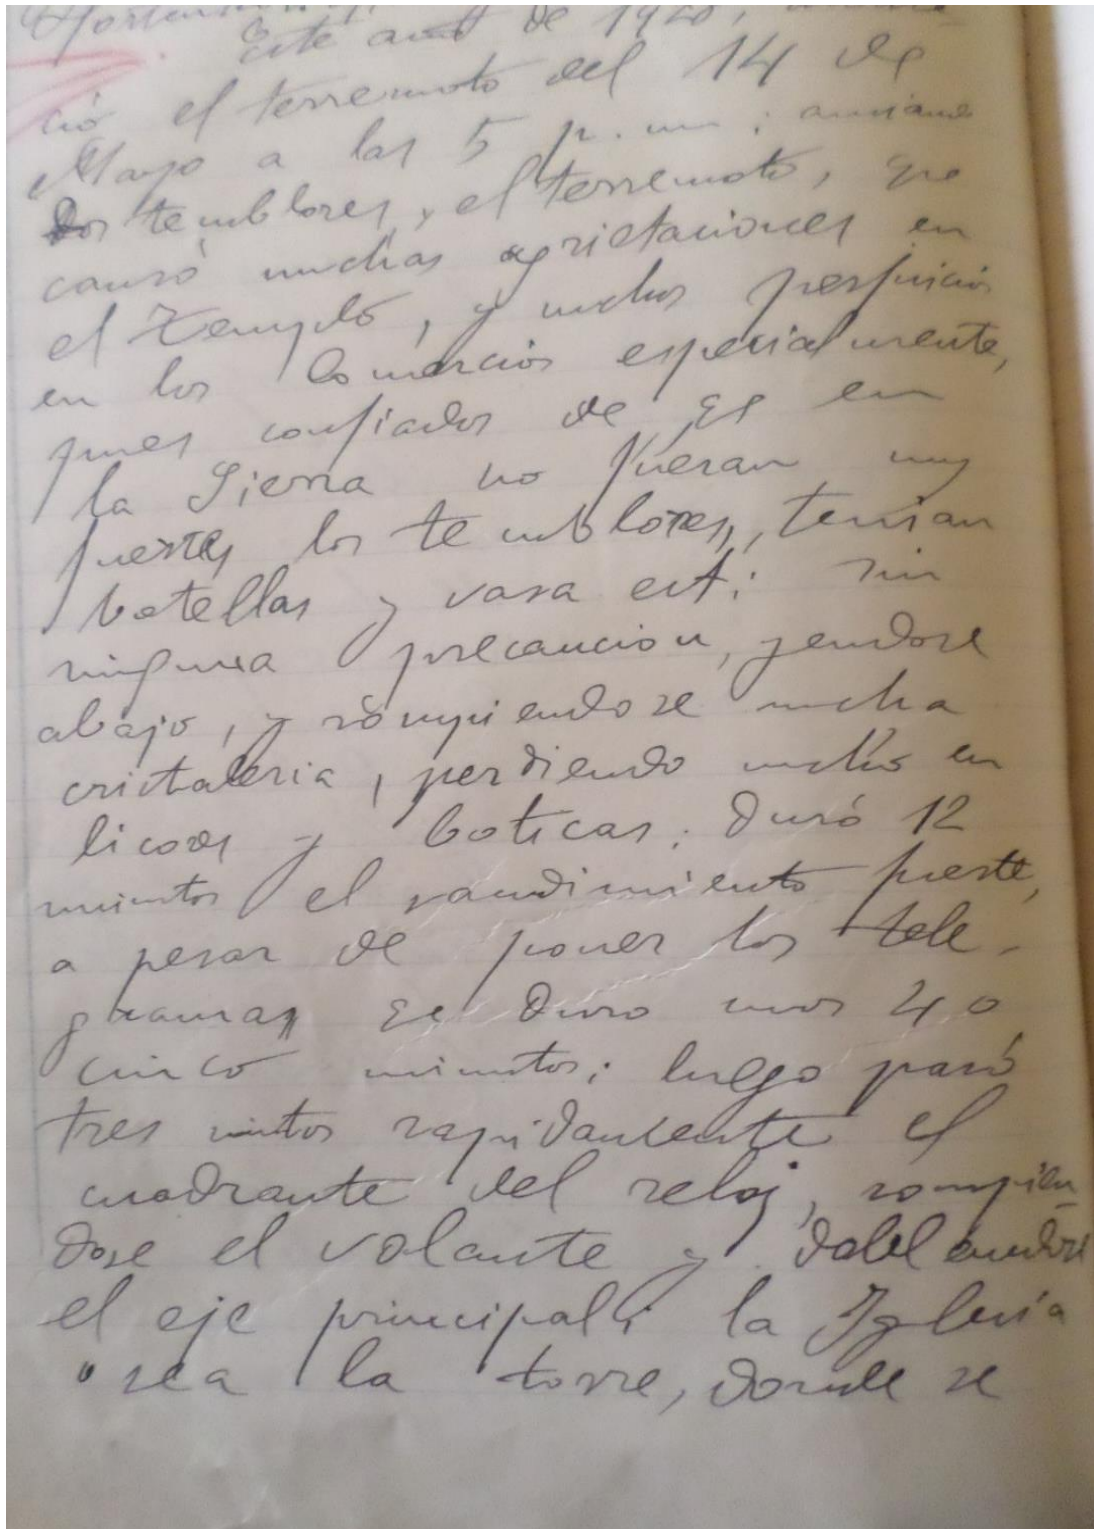 Este año de 1928,
ció el terremoto del 14 de
Mayo a las 5 p. m ;
Dos temblores, y el terremoto, qe
causó muchas agrietaciones en
el Templo, y muchos perjuicios
en los Comercios especialmente,
pues confiados de qe en
la Sierra no fueran muy
fuertes los temblores, tenian
botellas y vasa ect: sin
ninguna precaucion, yendose
abajo, y rompiendose mcha
cristaleria, perdiendo mchs en
licores y boticas; Duró 12
minutos el fuerte,
a pesar de poner los tele-
gramas qe Duro unos 40
cinco minutos; luego paró
tres mntos rapidamente el
cuadrante del reloj, rompien-
dose el volante y doblandose
el eje principal; la Iglesia
o sea la torre, donde se